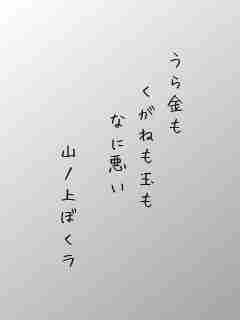 うら金も
くがねも玉も
なに悪い
山ノ上ぼくラ